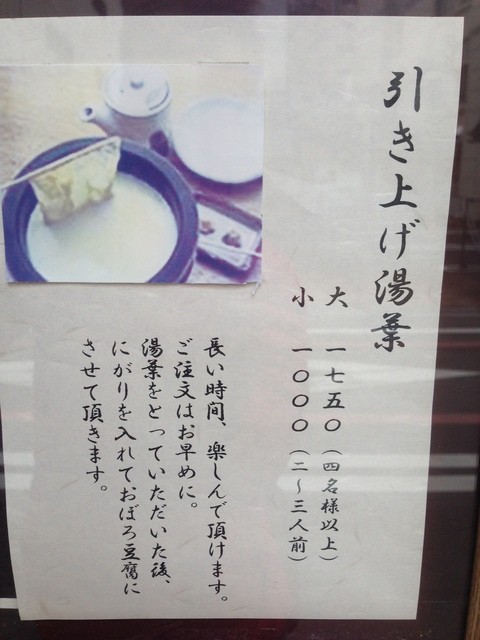 引き上げ湯葉
大 一七五〇（四名様以上）
小 一〇〇〇（二～三人前）
長い時間、楽しんで頂けます。
ご注文はお早めに。
湯葉をとっていただいた後、
にがりを入れておぼろ豆腐に
させて頂きます。